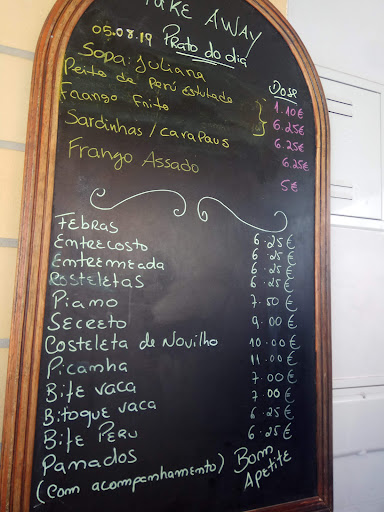 TAKE AWAY
05.08.19 Prato do dia
Dose
Sopa: Juliana 1.10€
Peito de Peru Estufado 6.25€
Frango Frito 6.25€
Sardinhas/Carapaus 6.25€
Frango Assado 5€
Febras 6.25€
Entrecosto 6.25€
Entremeada 6.25€
Costeletas 6.25€
Piamo 7.50€
Secreto 9.00€
Costeleta de Novilho 10.00€
Picanha 11.00€
Bife vaca 7.00€
Bitoque vaca 7.00€
Bife Peru 6.25€
Panados 6.25€
(com acompanhamento) Bom
Apetite